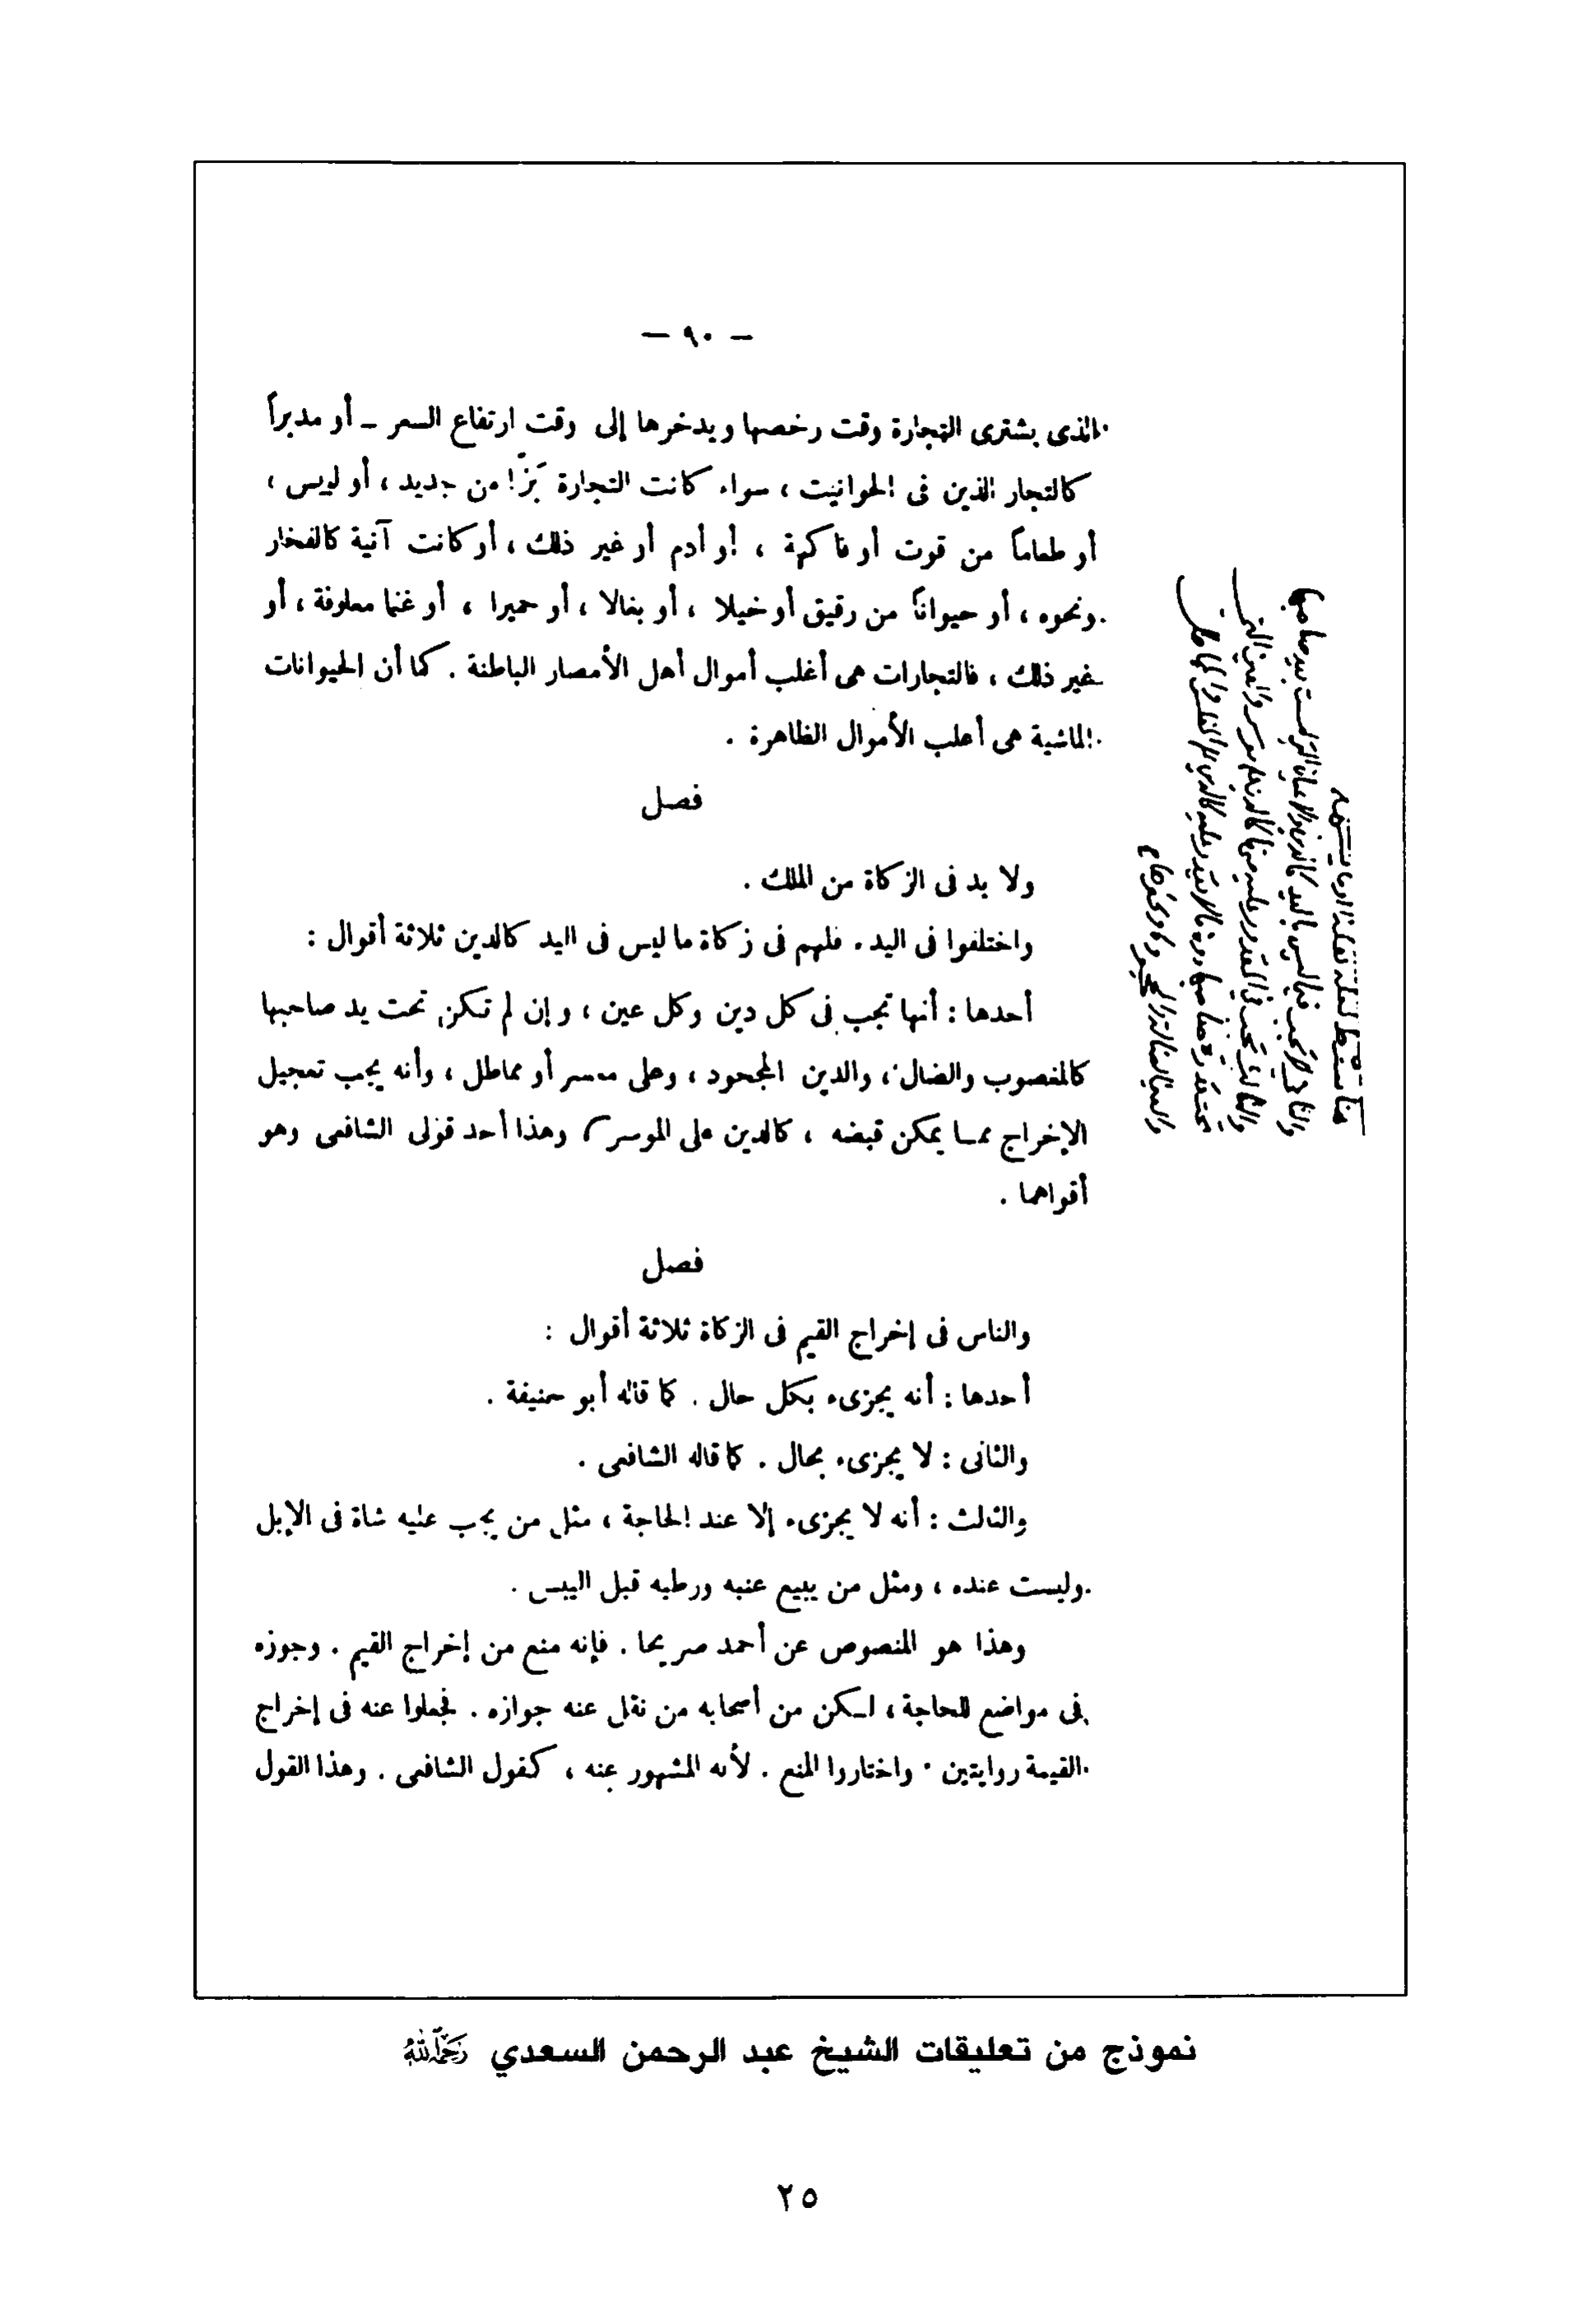 — ٩٠ —
الذى يشترى التجارة وقت رخصها ويدخرها إلى وقت ارتفاع السعر – أو مديراً
كالتجار الذين فى الحوانيت ، سواء كانت التجارة بَزًّا من جديد ، أو لبيس ،
أو طعاماً من قوت أو فاكهة ، أو أدم أو غير ذلك ، أو كانت آنية كالفخار
ونحوه ، أو حيواناً من رقيق أو خيلا ، أو بغالا ، أو حميرا ، أو غنما معلوفة ، أو
غير ذلك ، فالتجارات هى أغلب أموال أهل الأمصار الباطنة . كما أن الحيوانات
الماشية هى أغلب الأموال الظاهرة .
فصل
ولا بد فى الزكاة من الملك .
واختلفوا فى اليد . فلهم فى زكاة ما ليس فى اليد كالدين ثلاثة أقوال :
أحدها : أنها تجب فى كل دين وكل عين ، وإن لم تكن تحت يد صاحبها
كالمغصوب والضال ، والدين المجحود ، وعلى معسر أو مماطل ، وأنه يجب تعجيل
الإخراج مما يمكن قبضه ، كالدين على الموسر وهذا أحد قولى الشافعى وهو
أقواهما .
هنا سقط لعله
والثانى لا تجب فيما ليس باليد كالدين والأعيان التى ليست بيد صاحبها
والثالث تجب فى المقدور عليه منها كالدين على موسر والعين التى
فصل
والناس فى إخراج القيم فى الزكاة ثلاثة أقوال :
أحدها : أنه يجزىء بكل حال . كما قاله أبو حنيفة .
والثانى : لا يجزىء بحال . كما قاله الشافعى .
والثالث : أنه لا يجزىء إلا عند الحاجة ، مثل من يجب عليه شاة فى الإبل
وليست عنده ، ومثل من يبيع عنبه ورطبه قبل اليبس .
وهذا هو المنصوص عن أحمد صريحا . فإنه منع من إخراج القيم . وجوزه
فى مواضع للحاجة ، لكن من أصحابه من نقل عنه جوازه . فجعلوا عنه فى إخراج
القيمة روايتين . واختاروا المنع . لأنه المشهور عنه ، كقول الشافعى . وهذا القول
نموذج من تعليقات الشيخ عبد الرحمن السعدي رحمه الله
٢٥